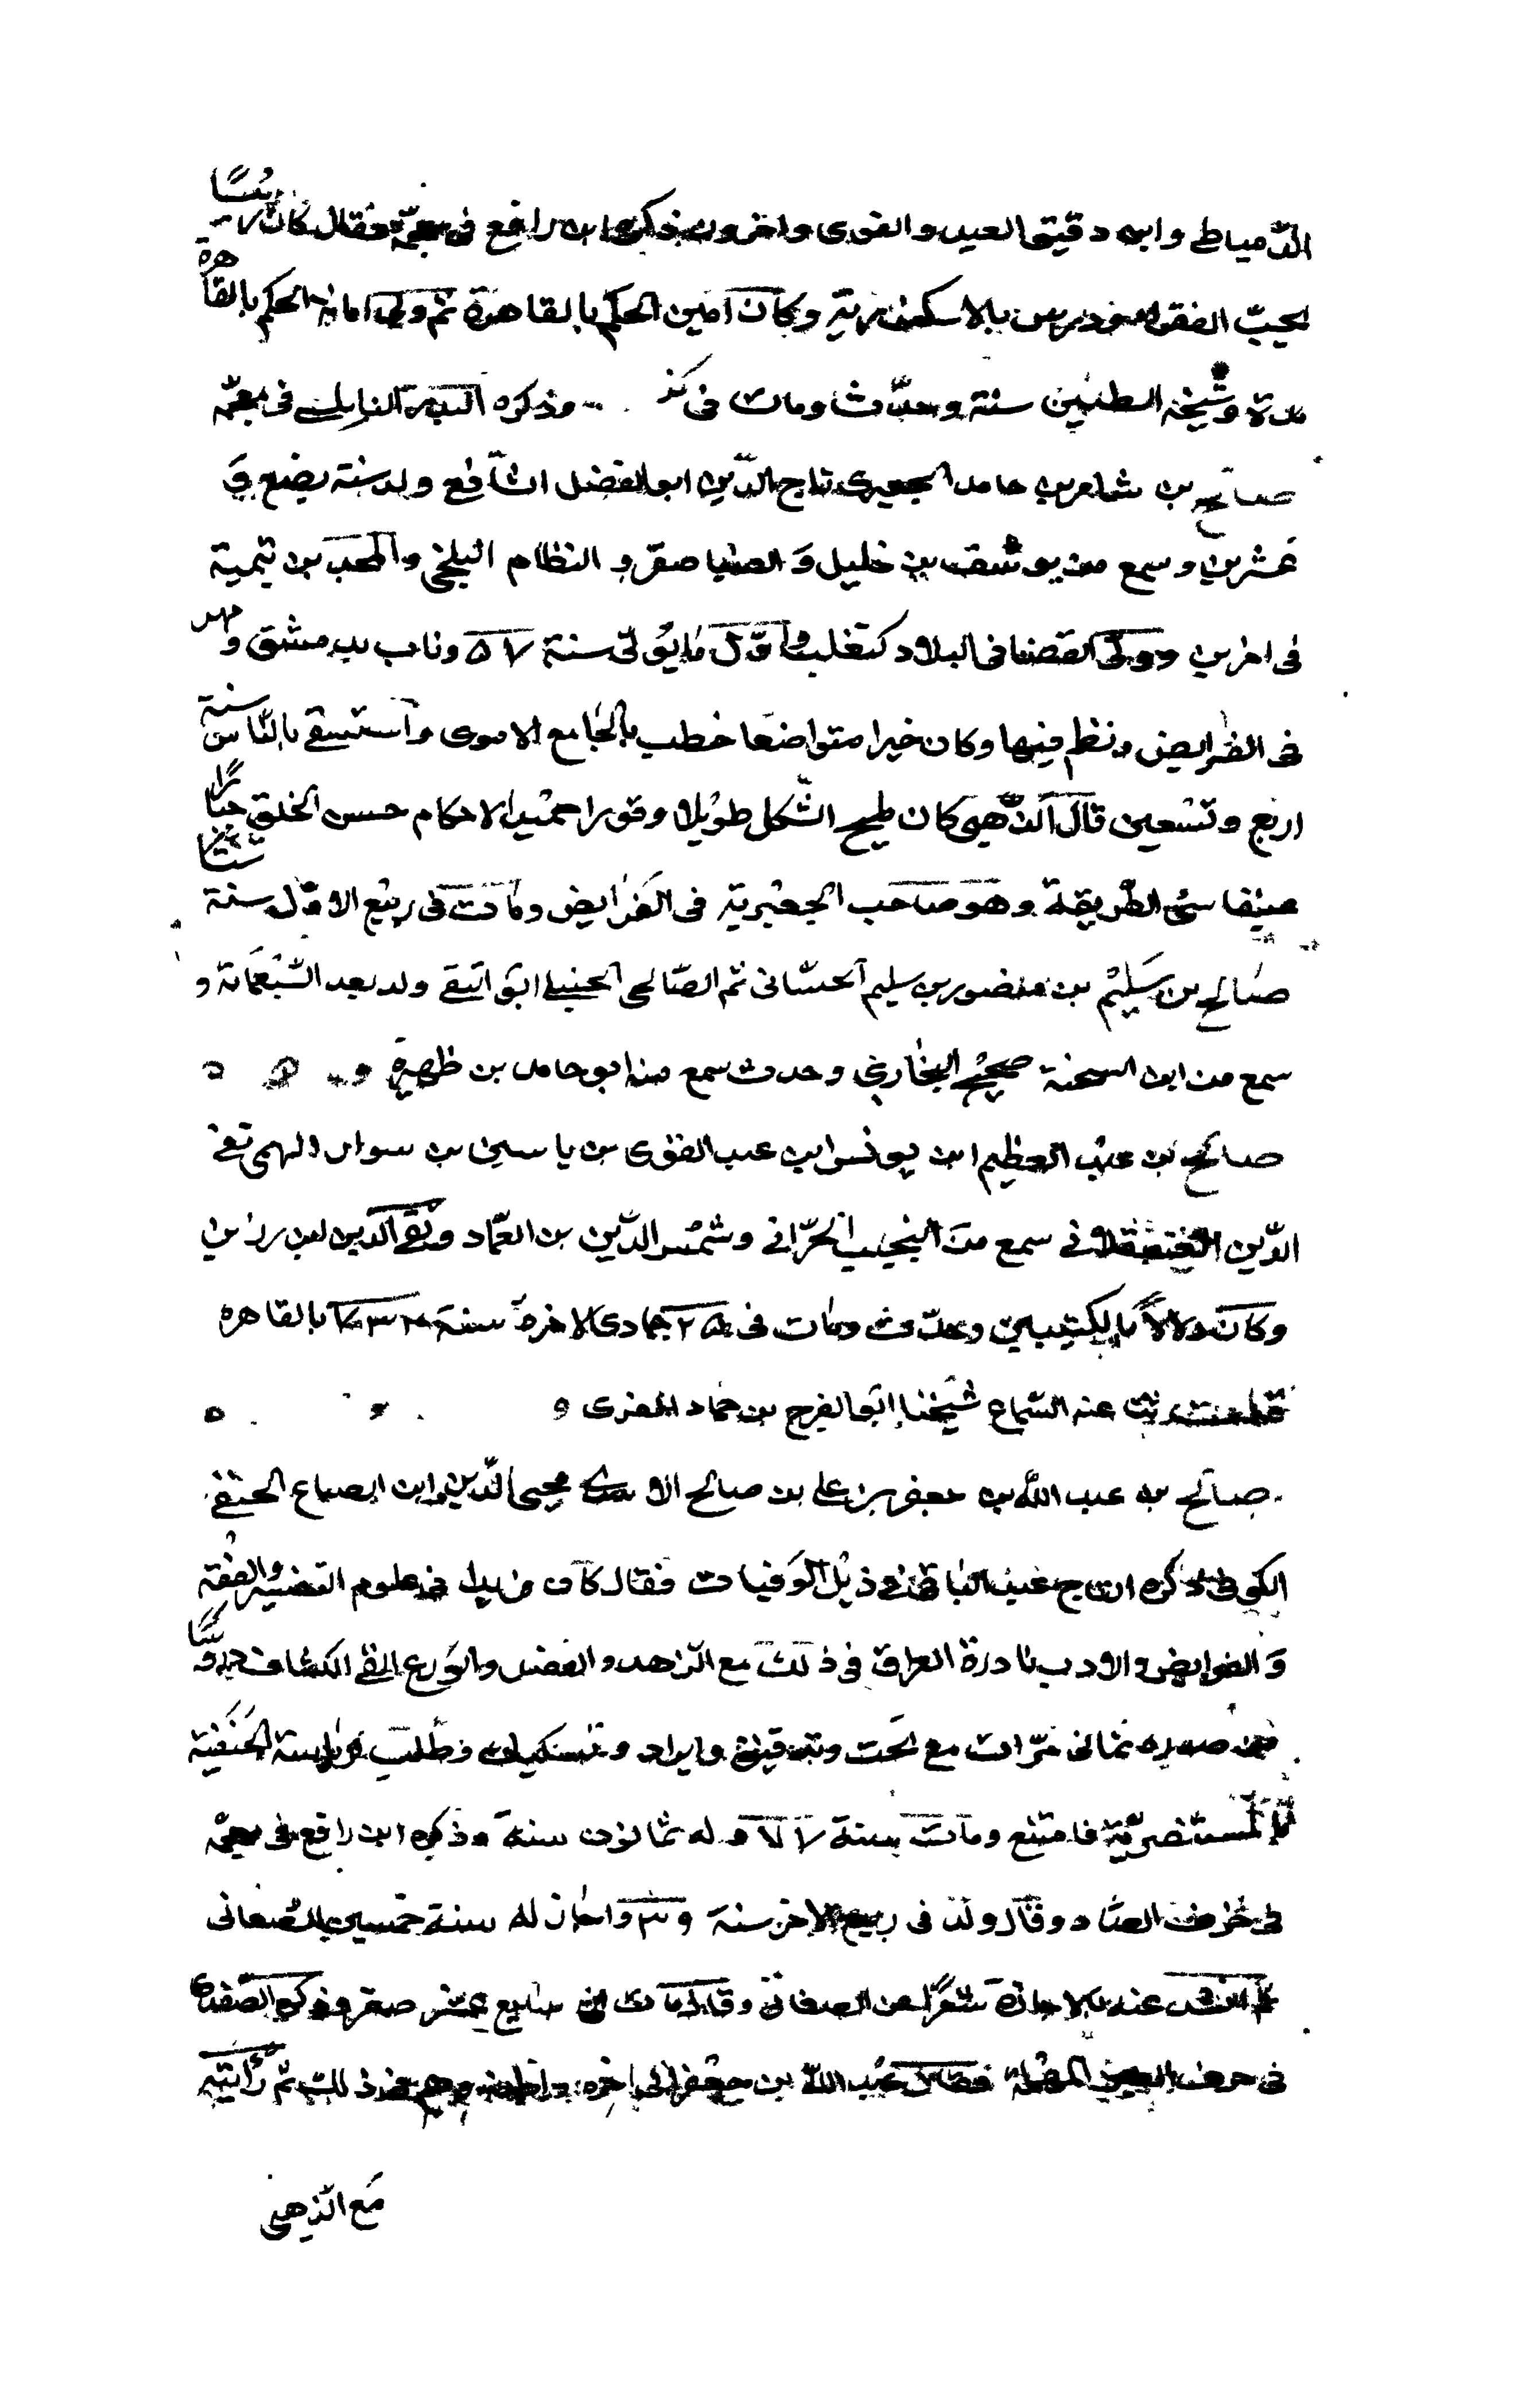 الدمياطي وابن دقيق العيد والقوى واخرون ذكره ابن رافع في معجمه فقال كان رئيسًا
يحب الفقرا ودرس بالاسكندرية وكان امين الحكم بالقاهرة ثم ولي امانة الحكم بالقاهرة
مدة وشيخه سنة وحدّث ومات في وذكره البدر النابلسي في معجمه
صالح بن ثامر بن حامد الجعبري تاج الدّين ابو الفضل الشافعي ولد سنة بضع و
عشرين وسمع من يوسف بن خليل والضيا صقر والنظام البلخي والمجد بن تيمية
في اخرين وولي القضا في البلاد كبعلبك واوّل ما يولّى سنة ٥٧ وناب بدمشق ومهر
في الفرايض ونظم فيها وكان خيرا متواضعا خطب بالجامع الاموى واستسقى بالناس سنة
اربع وتسعين قال الذّهبي كان مليح الشّكل طويلا وقورا حميد الاحكام حسن الخلق خيّرًا
عفيفا سنى الطّريقة وهو صاحب الجعبرية في الفرايض ومات في ربيع الاوّل سنة
صالح بن سَلِيْم بن منصور بن سليم الحسّانى ثم الصّالحي الحنبلي ابو التقى ولد بعد السّبعمائة و
سمع من ابن الشحنة صحيح البخاري وحدث سمع منه ابو حامد بن ظهيرة و ٥
صالح بن عبد العظيم ابن يونس ابن عبد القوى بن ياسين بن سوار تقي
الدّين العسقلاني سمع من النجيب الحرّاني وشمس الدّين بن العماد وتقي الدين ابن رزين
وكان دلالاً بالكتبيين وحدّث ومات في ٢٥ جمادى الاخرة سنة ٧٣٢ بالقاهرة
عنه السّماع شيخنا ابو الفرج بن حماد المغزى و ٥
صالح بن عبد الله بن جعفر بن علي بن صالح الاسدي محيى الدّين ابن الصباغ الحنفي
الكوفي ذكره التاج عبد الباقي في ذيل الوفيات فقال كان فريدا في علوم التفسير والفقه
والفرايض والادب نادرة العراق في ذلك مع الزهد والفضل والورع القى الكشاف دروسًا
من صدره ثماني مرّات مع بحث وتدقيق وايراد وتشكيك وطلب لرياسة الحنفية
بالمستنصرية فامتنع ومات سنة ٧٢٧ وله ثمانون سنة وذكره ابن رافع في معجمه
في حرف الصّاد وقال ولد في ربيع الاخر سنة ٣٩ واجاز له سنة خمسين الصّغانى
ثم انشد عنه بالاجازة شعرًا عن الصغانى وقال مات في سابع عشر صفر وذكره الصّفدي
في حرف العين المهملة فقال عبد الله بن جعفر الى اخره ثم رأيته
مع الذهبي